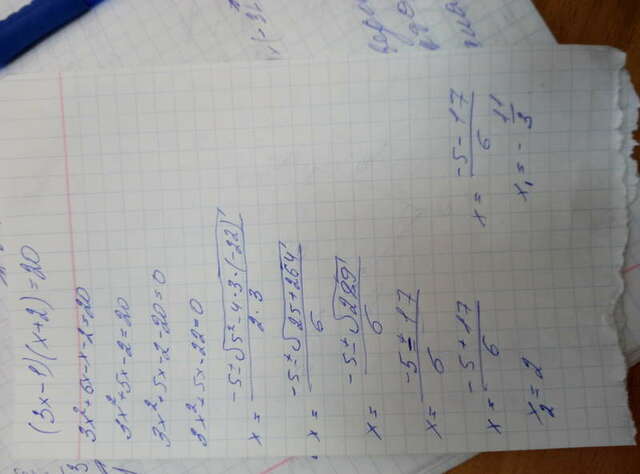 (3x-1)(x+2)=20
3x²+6x-x-2=20
3x²+5x-2=20
3x²+5x-2-20=0
3x²+5x-22=0
x = -5±√5²-4·3·(-22) / 2·3
x = -5±√25+264 / 6
x = -5±√289 / 6
x = -5±17 / 6
x = -5+17 / 6
x = -5-17 / 6
x₂=2
x₁=-11/3